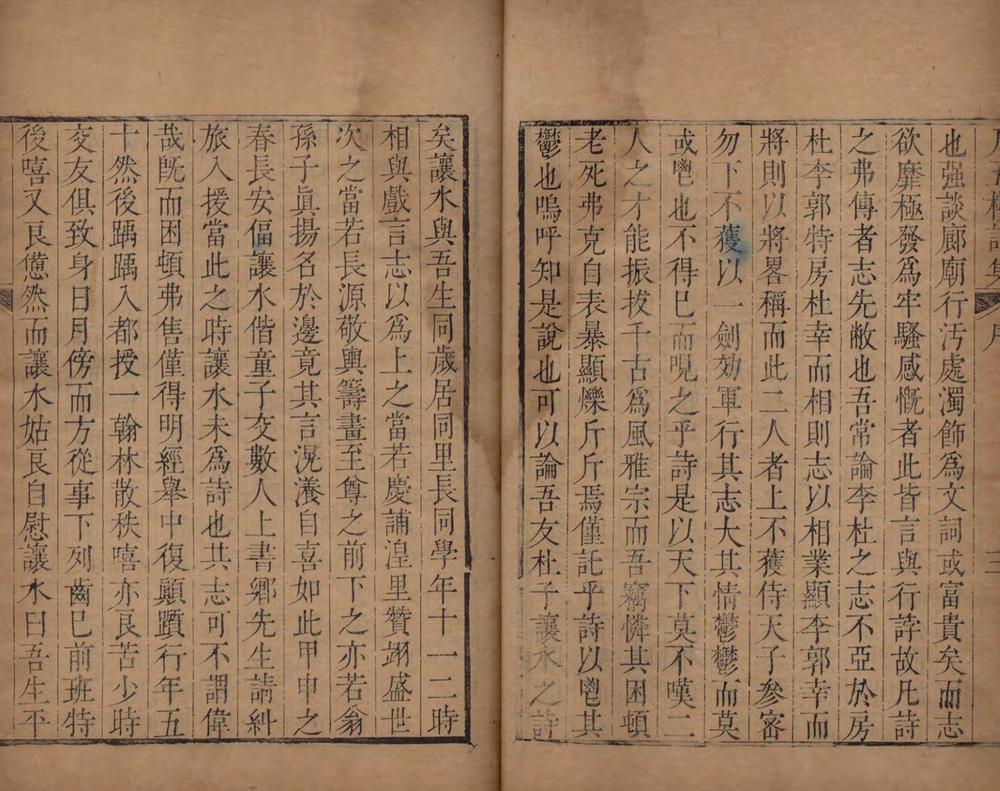 序
三
也强談廊廟行汚處濁飾爲文詞或富貴矣而志
欲靡極發爲牢騷感慨者此皆言與行誖故凡詩
之弗傳者志先敝也吾常論李杜之志不亞於房
杜李郭特房杜幸而相則志以相業顯李郭幸而
將則以將畧稱而此二人者上不獲侍天子參密
勿下不獲以一劍効軍行其志大其情鬱鬱而莫
或鬯也不得已而晛之乎詩是以天下莫不嘆二
人之才能振拔千古爲風雅宗而吾竊憐其困頓
老死弗克自表暴顯爍斤斤焉僅託乎詩以鬯其
鬱也嗚呼知是說也可以論吾友杜子讓水之詩
矣讓水與吾生同歲居同里長同學年十一二時
相與戲言志以爲上之當若慶誧湟里贊翊盛世
次之當若長源敬輿籌畫至尊之前下之亦若翁
孫子眞揚名於邊竟其言滉瀁自喜如此甲申之
春長安偪讓水偕童子交數人上書鄉先生請糾
旅入援當此之時讓水未爲詩也其志可不謂偉
哉旣而困頓弗售僅得明經舉中復顚躓行年五
十然後踽踽入都授一翰林散秩嘻亦良苦少時
交友俱致身日月傍而方從事下列齒已前班特
後嘻又良憊然而讓水姑良自慰讓水曰吾生平